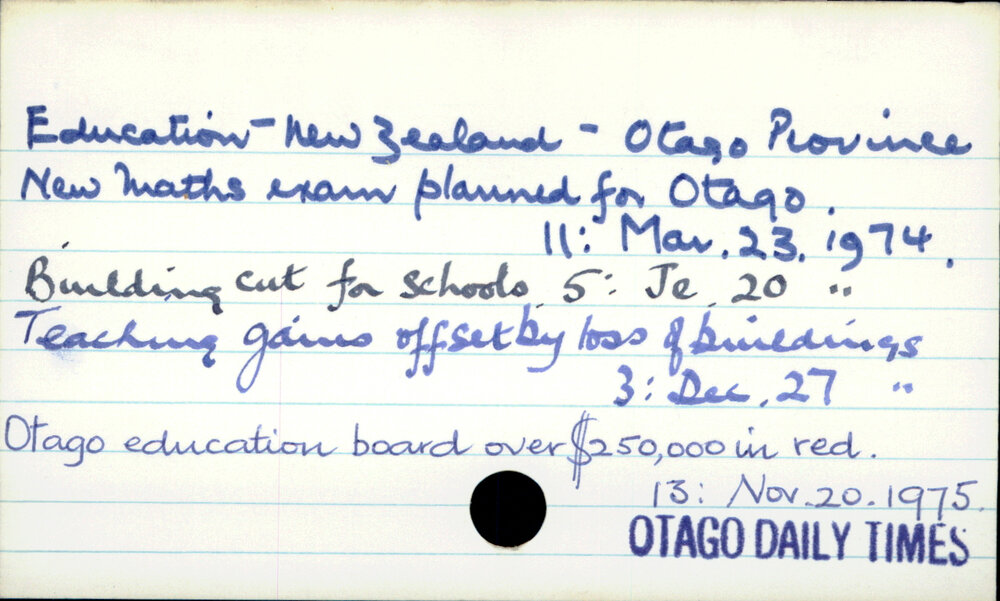 Education - New Zealand - Otago Province
New Maths exam planned for Otago.
11: Mar. 23. 1974.
Building cut for schools. 5: Je. 20 "
Teaching gains offset by loss of buildings
3: Dec. 27 "
Otago education board over $250,000 in red.
13: Nov. 20. 1975.
OTAGO DAILY TIMES